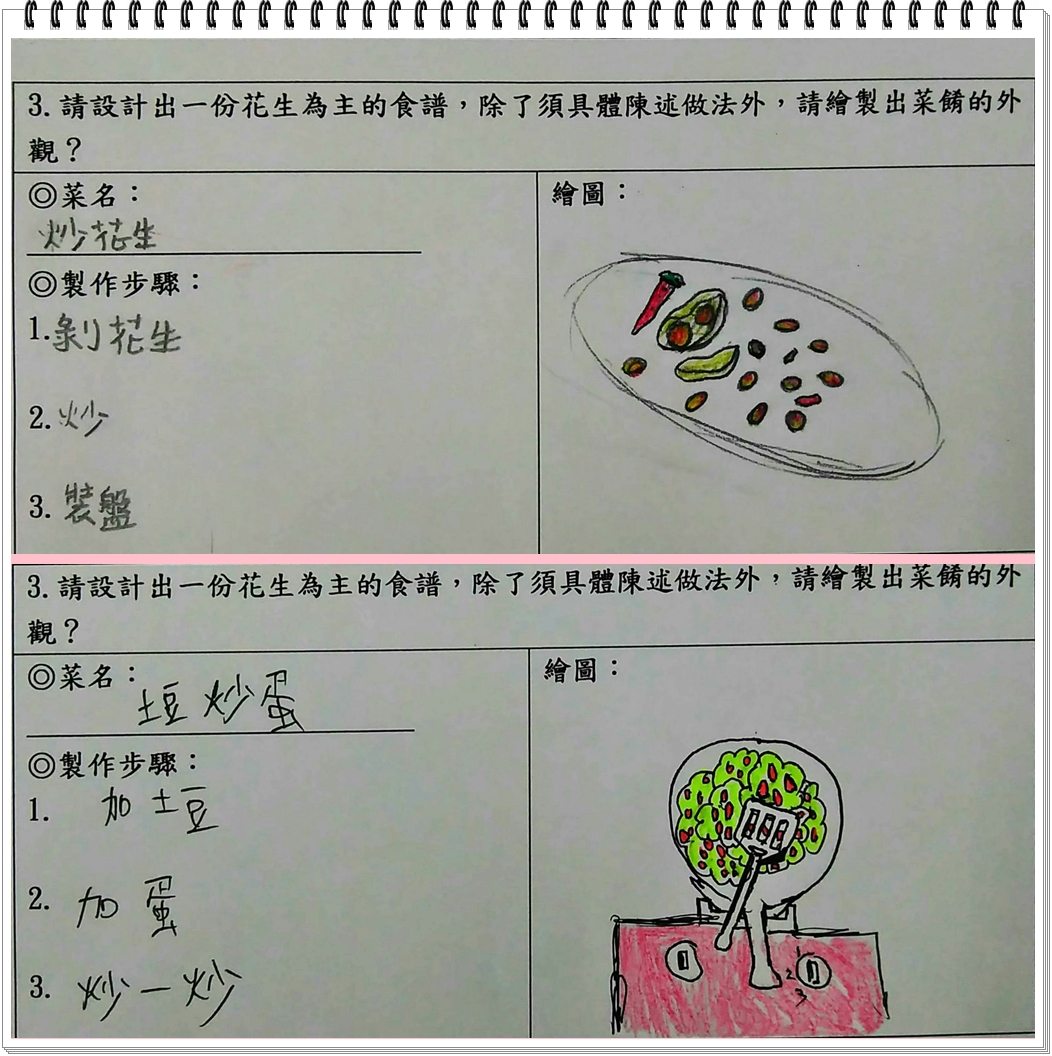 3. 請設計出一份花生為主的食譜，除了須具體陳述做法外，請繪製出菜餚的外
觀？
◎菜名：
炒花生
◎製作步驟：
1.剝花生
2.炒
3.裝盤
繪圖：
3. 請設計出一份花生為主的食譜，除了須具體陳述做法外，請繪製出菜餚的外
觀？
◎菜名：
土豆炒蛋
◎製作步驟：
1. 加土豆
2. 加蛋
3. 炒一炒
繪圖：
1
2
3